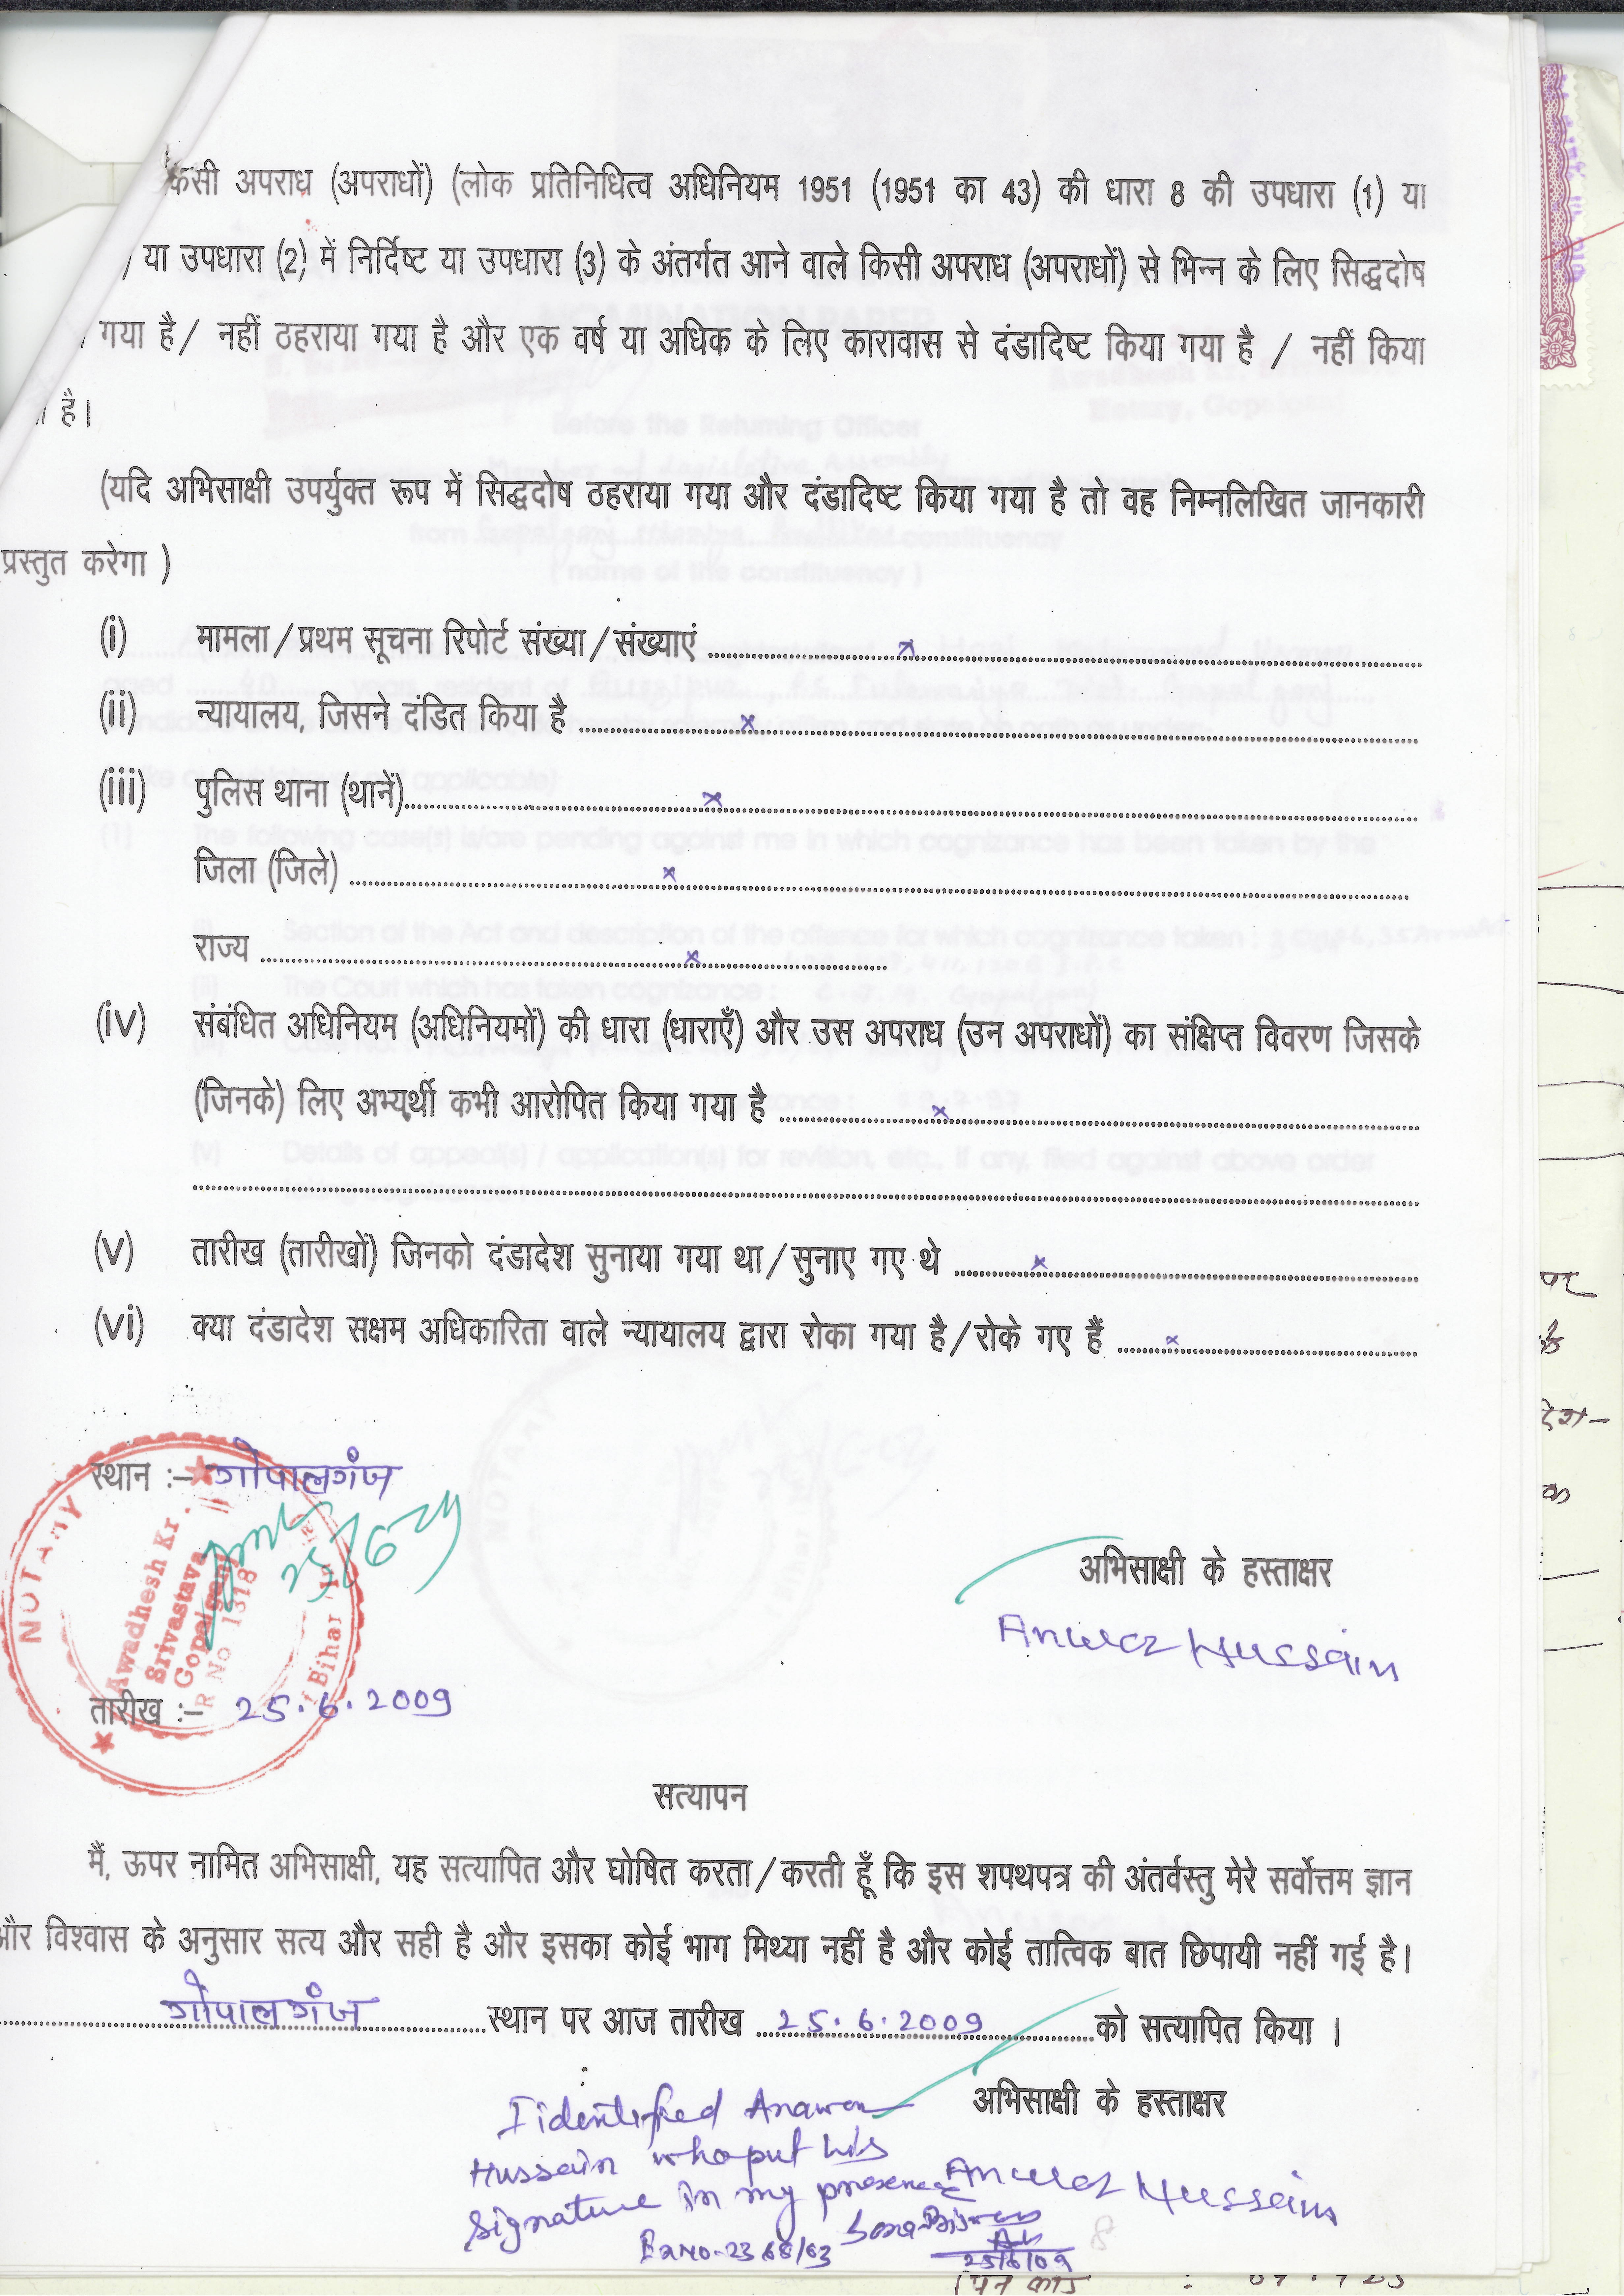 कसी अपराध (अपराधों) (लोक प्रतिनिधित्व अधिनियम 1951 (1951 का 43) की धारा 8 की उपधारा (1) या
) या उपधारा (2) में निर्दिष्ट या उपधारा (3) के अंतर्गत आने वाले किसी अपराध (अपराधों) से भिन्न के लिए सिद्धदोष
गया है/ नहीं ठहराया गया है और एक वर्ष या अधिक के लिए कारावास से दंडादिष्ट किया गया है / नहीं किया
है।
(यदि अभिसाक्षी उपर्युक्त रूप में सिद्धदोष ठहराया गया और दंडादिष्ट किया गया है तो वह निम्नलिखित जानकारी
प्रस्तुत करेगा )
(i) मामला/प्रथम सूचना रिपोर्ट संख्या/संख्याएं ..... x .....
(ii) न्यायालय, जिसने दंडित किया है ..... x .....
(iii) पुलिस थाना (थानें)..... x .....
जिला (जिले) ..... x .....
राज्य ..... x .....
(iv) संबंधित अधिनियम (अधिनियमों) की धारा (धाराएँ) और उस अपराध (उन अपराधों) का संक्षिप्त विवरण जिसके
(जिनके) लिए अभ्यर्थी कभी आरोपित किया गया है ..... x .....
(v) तारीख (तारीखों) जिनको दंडादेश सुनाया गया था/सुनाए गए थे ..... x .....
(vi) क्या दंडादेश सक्षम अधिकारिता वाले न्यायालय द्वारा रोका गया है/रोके गए हैं ..... x .....
स्थान :– गोपालगंज
25/6/09
NOTARY
Awadhesh Kr.
Srivastava
Gopalganj
R No 1318
Bihar
अभिसाक्षी के हस्ताक्षर
Anwar Hussain
तारीख :– 25.6.2009
सत्यापन
मैं, ऊपर नामित अभिसाक्षी, यह सत्यापित और घोषित करता/करती हूँ कि इस शपथपत्र की अंतर्वस्तु मेरे सर्वोत्तम ज्ञान
और विश्वास के अनुसार सत्य और सही है और इसका कोई भाग मिथ्या नहीं है और कोई तात्विक बात छिपायी नहीं गई है।
गोपालगंज स्थान पर आज तारीख 25.6.2009 को सत्यापित किया ।
अभिसाक्षी के हस्ताक्षर
I identified Anawar
Hussain who put his
signature in my presence
Anwar Hussain
25/6/09
8